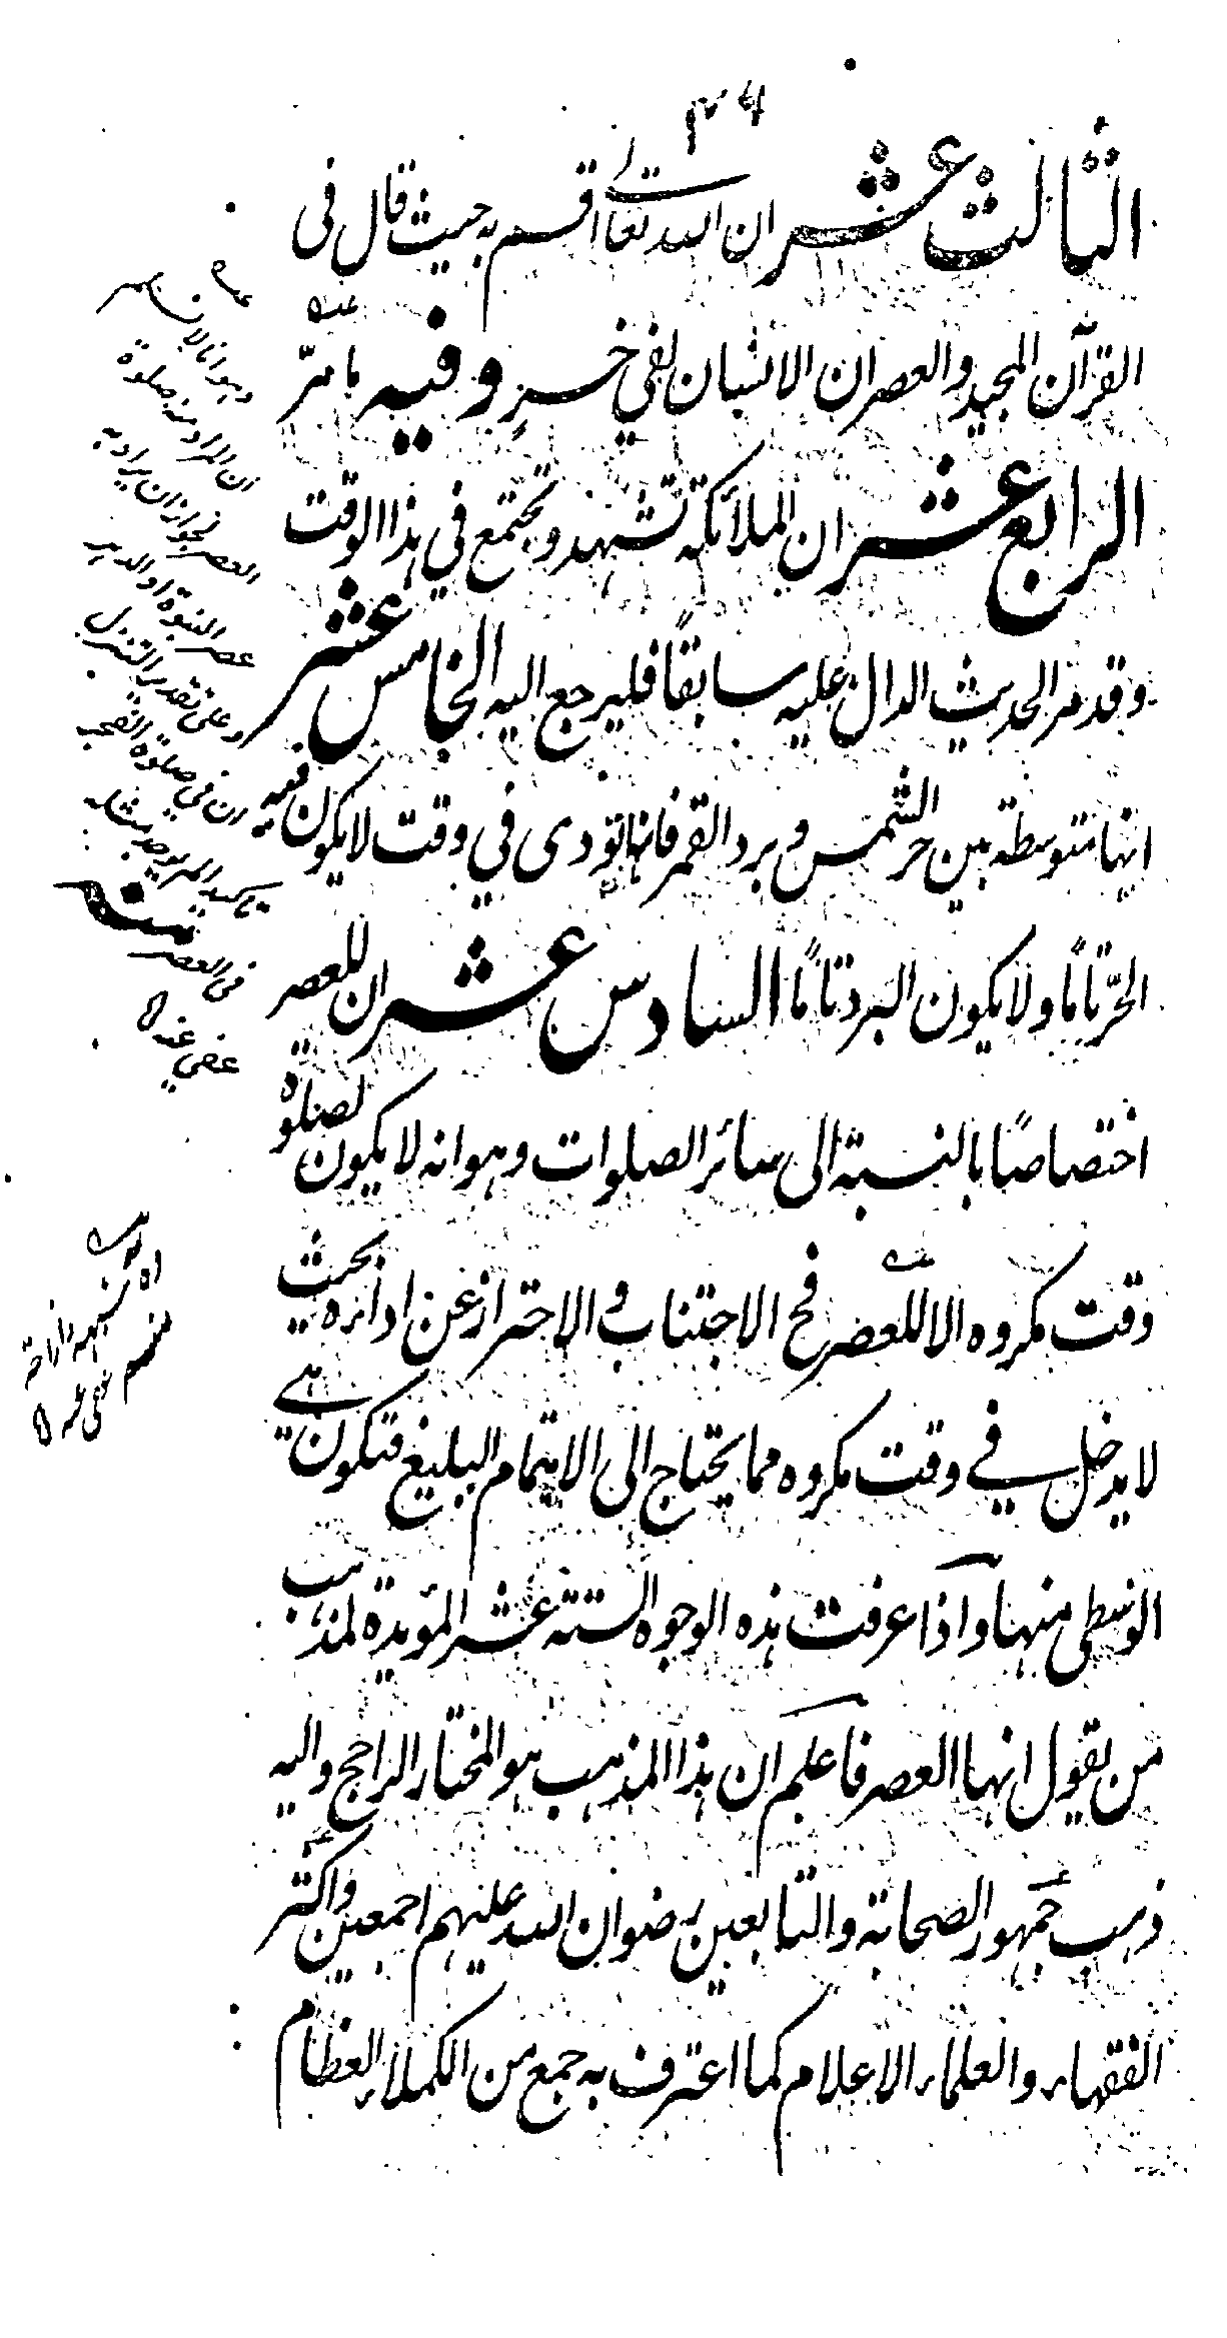 ٣٤
الثالث عشر ان الله تعالى اقسم به حيث قال فى
القرآن المجيد والعصر ان الانسان لفي خسر وفيه ما مرّ
الرابع عشر ان الملائكة تشهد وتجتمع في هذا الوقت
وقد مر الحديث الدال عليه سابقًا فليرجع اليه الخامس عشر
انها متوسطة بين حر الشمس وبرد القمر فانها تؤدى في وقت لا يكون فيه
الحرّ تامًا ولا يكون البرد تامًا السادس عشر ان للعصر
اختصاصًا بالنسبة الى سائر الصلوات وهو انه لا يكون لصلوة
وقت مكروه الا للعصر فح الاجتناب والاحتراز عن ادائه بحيث
لا يدخل في وقت مكروه مما يحتاج الى الاهتمام البليغ فتكون هي
الوسطى منها وآذا عرفت هذه الوجوه الستة عشر المؤيدة لمذهب
من يقول انها العصر فاعلم ان هذا المذهب هو المختار الراجح واليه
ذهب جمهور الصحابة والتابعين رضوان الله عليهم اجمعين واكثر
الفقهاء والعلماء الاعلام كما اعترف به جمع من الكملاء العظام
عـه
وهو انا لا نسلم
ان المراد منه صلوة
العصر لجواز ان يراد به
عصر النبوة او الدهر
وعلى تقدير التنزل
ان في صلوة الفجر
فى العصر
عفي عنه